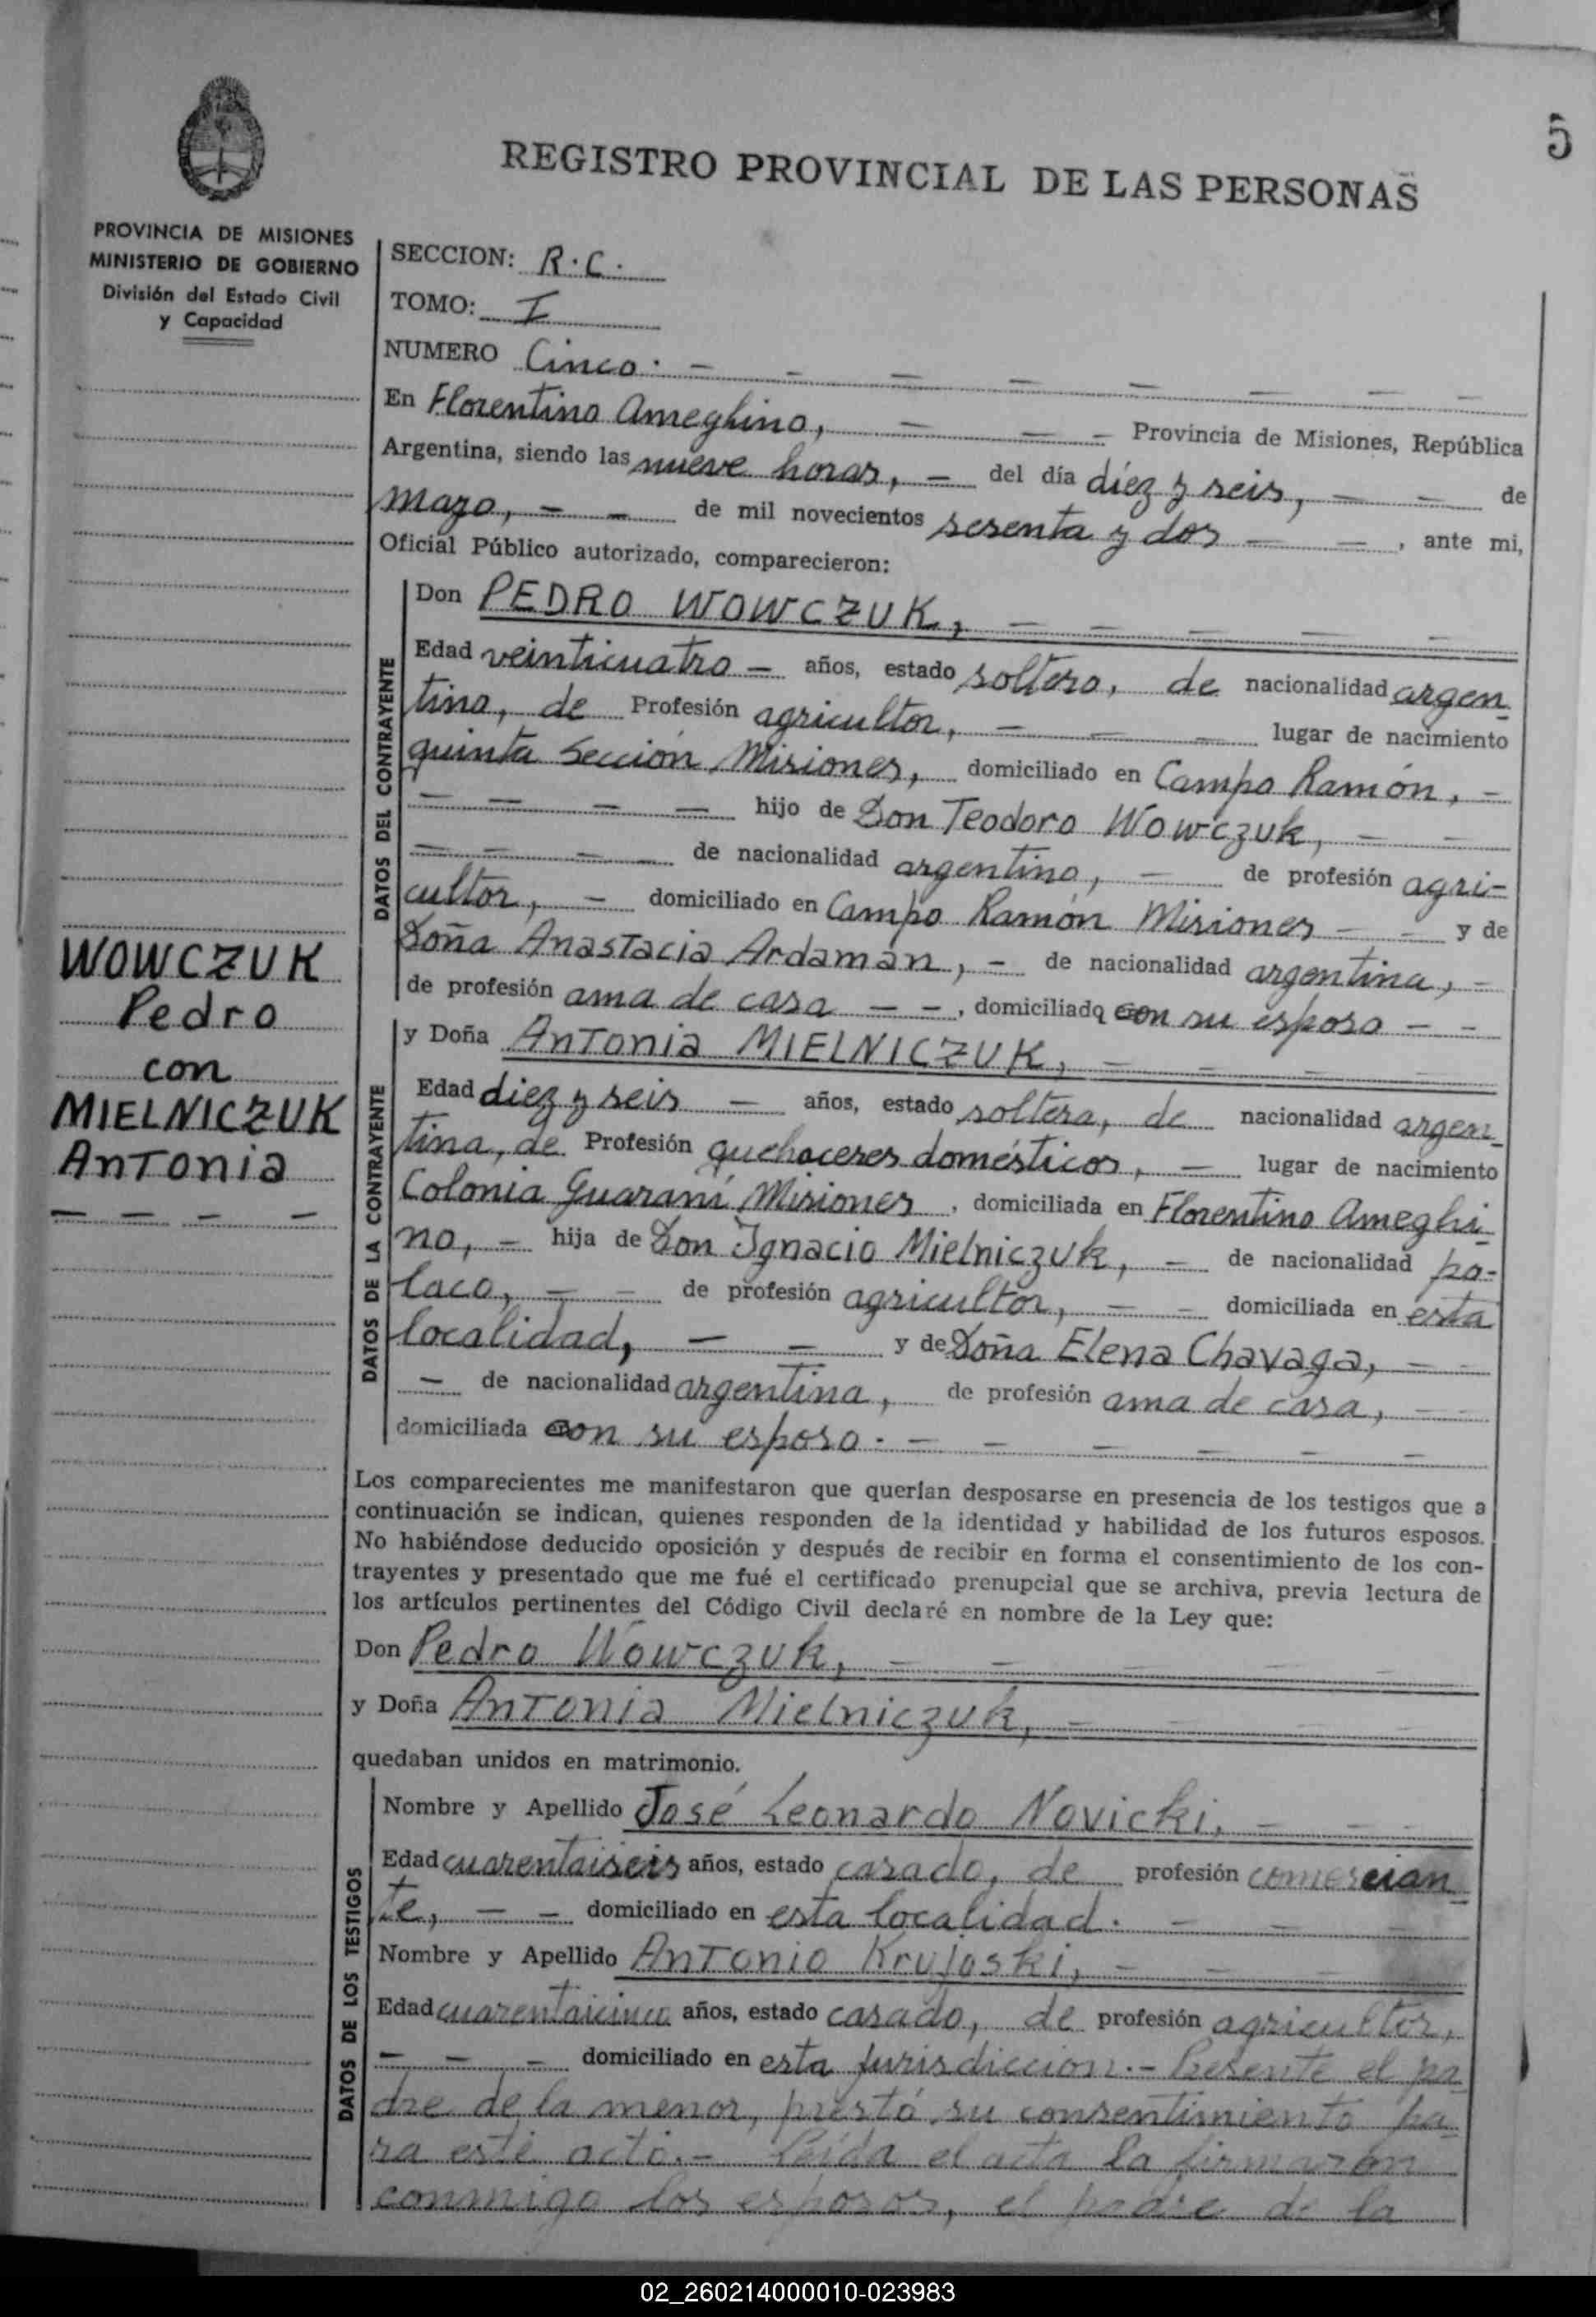 5
REGISTRO PROVINCIAL DE LAS PERSONAS
PROVINCIA DE MISIONES
MINISTERIO DE GOBIERNO
División del Estado Civil
y Capacidad
SECCION: R.C.
TOMO: I
NUMERO Cinco. - - - - - - - -
En Florentino Ameghino, - - - Provincia de Misiones, República
Argentina, siendo las nueve horas, - del día diez y seis, - - de
mayo, - - de mil novecientos sesenta y dos - - , ante mi,
Oficial Público autorizado, comparecieron:
DATOS DEL CONTRAYENTE
Don PEDRO WOWCZUK, - - - - -
Edad veinticuatro - años, estado soltero, de nacionalidad argen-
tino, de Profesión agricultor, - - - lugar de nacimiento
quinta Sección Misiones, domiciliado en Campo Ramón, -
- - - - hijo de Don Teodoro Wowczuk, - -
- - - - de nacionalidad argentino, - de profesión agri-
cultor, - domiciliado en Campo Ramón Misiones - - y de
Doña Anastacia Ardaman, - de nacionalidad argentina, -
de profesión ama de casa - - , domiciliado con su esposo - -
WOWCZUK
Pedro
con
MIELNICZUK
Antonia
- - - -
DATOS DE LA CONTRAYENTE
y Doña Antonia MIELNICZUK, - - - -
Edad diez y seis - años, estado soltera, de nacionalidad argen-
tina, de Profesión quehaceres domésticos, - lugar de nacimiento
Colonia Guaraní Misiones , domiciliada en Florentino Ameghi-
no, - hija de Don Ignacio Mielniczuk, - de nacionalidad po-
laco, - - de profesión agricultor, - - domiciliada en esta
localidad, - - y de Doña Elena Chavaga, - -
- de nacionalidad argentina, de profesión ama de casa, - -
domiciliada con su esposo. - - - - - -
Los comparecientes me manifestaron que querían desposarse en presencia de los testigos que a
continuación se indican, quienes responden de la identidad y habilidad de los futuros esposos.
No habiéndose deducido oposición y después de recibir en forma el consentimiento de los con-
trayentes y presentado que me fué el certificado prenupcial que se archiva, previa lectura de
los artículos pertinentes del Código Civil declaré en nombre de la Ley que:
Don Pedro Wowczuk, - - - - -
y Doña Antonia Mielniczuk, - - - -
quedaban unidos en matrimonio.
DATOS DE LOS TESTIGOS
Nombre y Apellido José Leonardo Novicki, - - -
Edad cuarentaiseis años, estado casado, de profesión comercian-
te, - - domiciliado en esta localidad. - - -
Nombre y Apellido Antonio Krujoski, - - - -
Edad cuarentaicinco años, estado casado, de profesión agricultor,
- - - domiciliado en esta jurisdiccion.- Presente el pa-
dre de la menor, prestó su consentimiento pa-
ra este acto.- Leída el acta la firmaron
conmigo los esposos, el padre de la
02_260214000010-023983